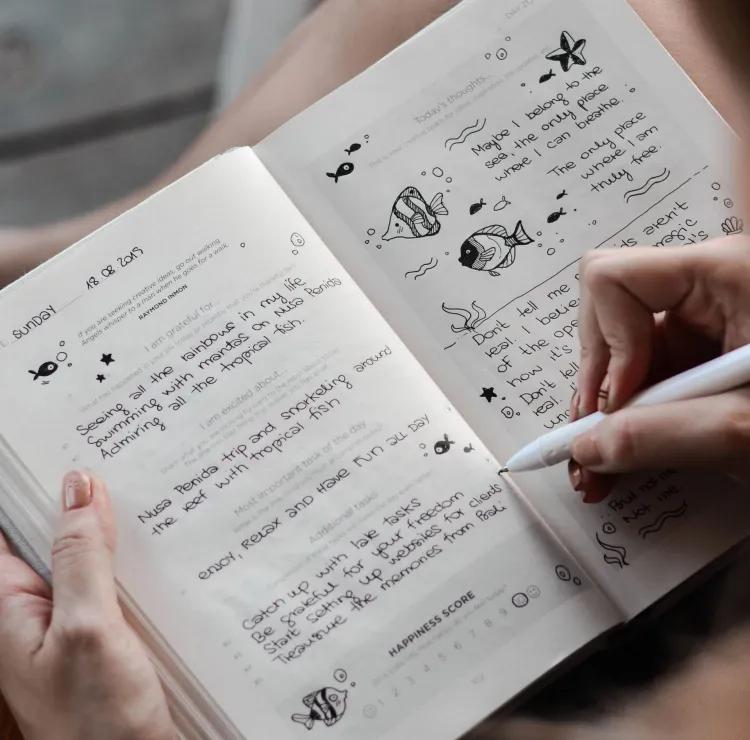 SUNDAY 18 08 2019
If you are seeking creative ideas, go out walking
Angels whisper to a man when he goes for a walk.
RAYMOND INMON
I am grateful for...
Seeing all the rainbows in my life
Swimming with mantas on Nusa Penida
Admiring all the tropical fish.
I am excited about...
Nusa Penida trip and snorkeling around
the reef with tropical fish
Most important task of the day
ENJOY, RELAX AND HAVE FUN ALL DAY
Additional tasks
Catch up with late tasks
Be grateful for your freedom
Start setting up websites for clients
Treausure the memories from Bali
HAPPINESS SCORE
1 2 3 4 5 6 7 8 9
DAY
Today's thoughts...
Maybe I belong to the
sea, the only place
where I can breathe.
The only place
where I am
truly free.
aren't
Don't tell me magic
real. I
of the
how it's
Don't tell
real.
Not